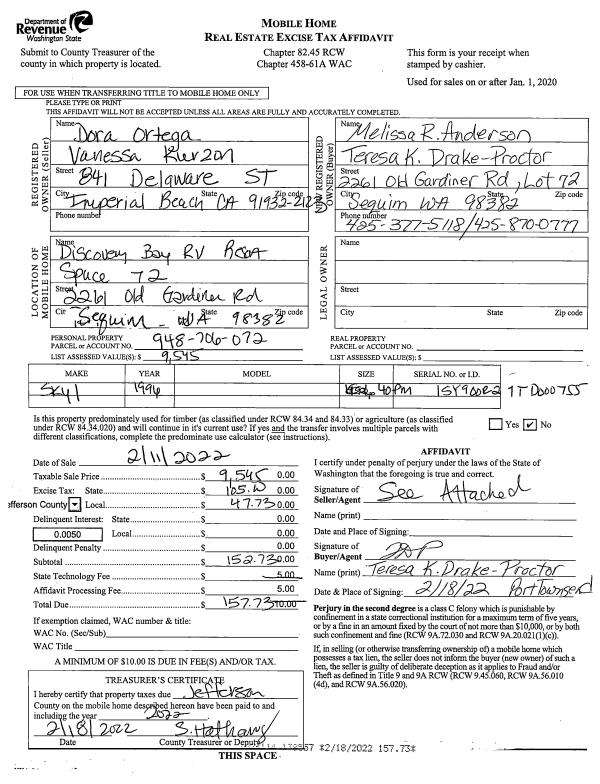 Department of
Revenue
Washington State
Submit to County Treasurer of the
county in which property is located.
MOBILE HOME
REAL ESTATE EXCISE TAX AFFIDAVIT
Chapter 82.45 RCW
Chapter 458-61A WAC
This form is your receipt when
stamped by cashier.
Used for sales on or after Jan. 1, 2020
FOR USE WHEN TRANSFERRING TITLE TO MOBILE HOME ONLY
PLEASE TYPE OR PRINT
THIS AFFIDAVIT WILL NOT BE ACCEPTED UNLESS ALL AREAS ARE FULLY AND ACCURATELY COMPLETED.
REGISTERED OWNER (Seller)
Name Dora Ortega
Vanessa Kurzon
Street 841 Delaware ST
City State Zip code
Imperial Beach CA 91932-2123
Phone number
REGISTERED OWNER (Buyer)
Name Melissa R. Anderson
Teresa K. Drake-Proctor
Street 2261 Old Gardiner Rd, Lot 72
City State Zip code
Sequim WA 98382
Phone number
425-377-5118/425-870-0777
LOCATION OF MOBILE HOME
Name
Discovery Bay RV
Space 72
Street 2261 Old Gardiner Rd
City State Zip code
Sequim WA 98382
LEGAL OWNER
Name
Street
City State Zip code
PERSONAL PROPERTY
PARCEL or ACCOUNT NO. 948-706-072
LIST ASSESSED VALUE(S): $ 9,545
REAL PROPERTY
PARCEL or ACCOUNT NO.
LIST ASSESSED VALUE(S): $
MAKE YEAR MODEL SIZE SERIAL NO. or I.D.
Skyl 1996 40 1SY900R2 1TD000755
Is this property predominately used for timber (as classified under RCW 84.34 and 84.33) or agriculture (as classified
under RCW 84.34.020) and will continue in it's current use? If yes and the transfer involves multiple parcels with
different classifications, complete the predominate use calculator (see instructions).
Yes ✓ No
Date of Sale 2/11/2022
Taxable Sale Price $ 9,545 0.00
Excise Tax: State $ 105.00 0.00
Jefferson County Local $ 47.73 0.00
Delinquent Interest: State $ 0.00
0.0050 Local $ 0.00
Delinquent Penalty $ 0.00
Subtotal $ 152.73 0.00
State Technology Fee $ 5.00
Affidavit Processing Fee $ 5.00
Total Due $ 157.73 10.00
If exemption claimed, WAC number & title:
WAC No. (Sec/Sub)
WAC Title
A MINIMUM OF $10.00 IS DUE IN FEE(S) AND/OR TAX.
AFFIDAVIT
I certify under penalty of perjury under the laws of the State of
Washington that the foregoing is true and correct.
Signature of
Seller/Agent See Attached
Name (print)
Date and Place of Signing:
Signature of
Buyer/Agent
Name (print) Teresa K. Drake-Proctor
Date & Place of Signing: 2/18/22 Port Townsend
Perjury in the second degree is a class C felony which is punishable by
confinement in a state correctional institution for a maximum term of five years,
or by a fine in an amount fixed by the court of not more than $10,000, or by both
such confinement and fine (RCW 9A.72.030 and RCW 9A.20.021(1)(c)).
If, in selling (or otherwise transferring ownership of) a mobile home which
possesses a tax lien, the seller does not inform the buyer (new owner) of such a
lien, the seller is guilty of deliberate deception as it applies to Fraud and/or
Theft as defined in Title 9 and 9A RCW (RCW 9.45.060, RCW 9A.56.010
(4d), and RCW 9A.56.020).
TREASURER'S CERTIFICATE
I hereby certify that property taxes due Jefferson
County on the mobile home described hereon have been paid to and
including the year 2022
2/18/2022 S. Hathaway
Date County Treasurer or Deputy
*2/18/2022 157.73*
THIS SPACE